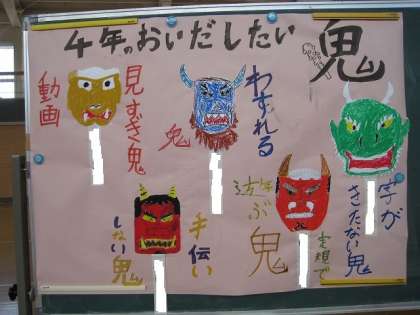 4年のおいだしたい鬼
字が
きたない鬼
わすれる
鬼
動画
見すぎ鬼
定規で
遊ぶ鬼
手伝い
しない鬼